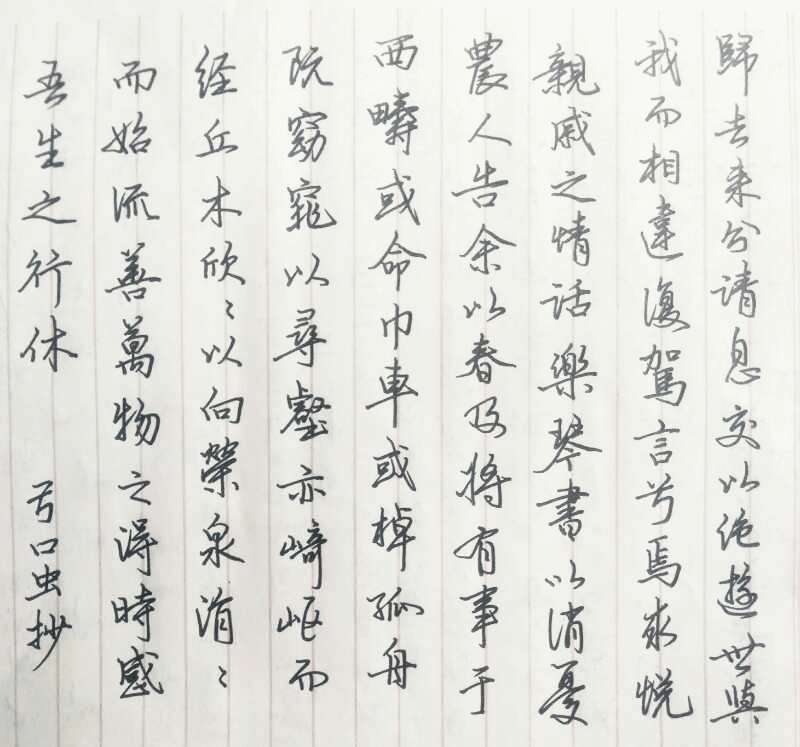 歸去来兮请息交以绝遊世與
我而相違復駕言兮焉求悦
親戚之情话樂琴書以消憂
農人告余以春及将有事于
西疇或命巾車或棹孤舟
既窈窕以尋壑亦崎岖而
经丘木欣〻以向榮泉涓〻
而始流善萬物之得時感
吾生之行休 口虫抄